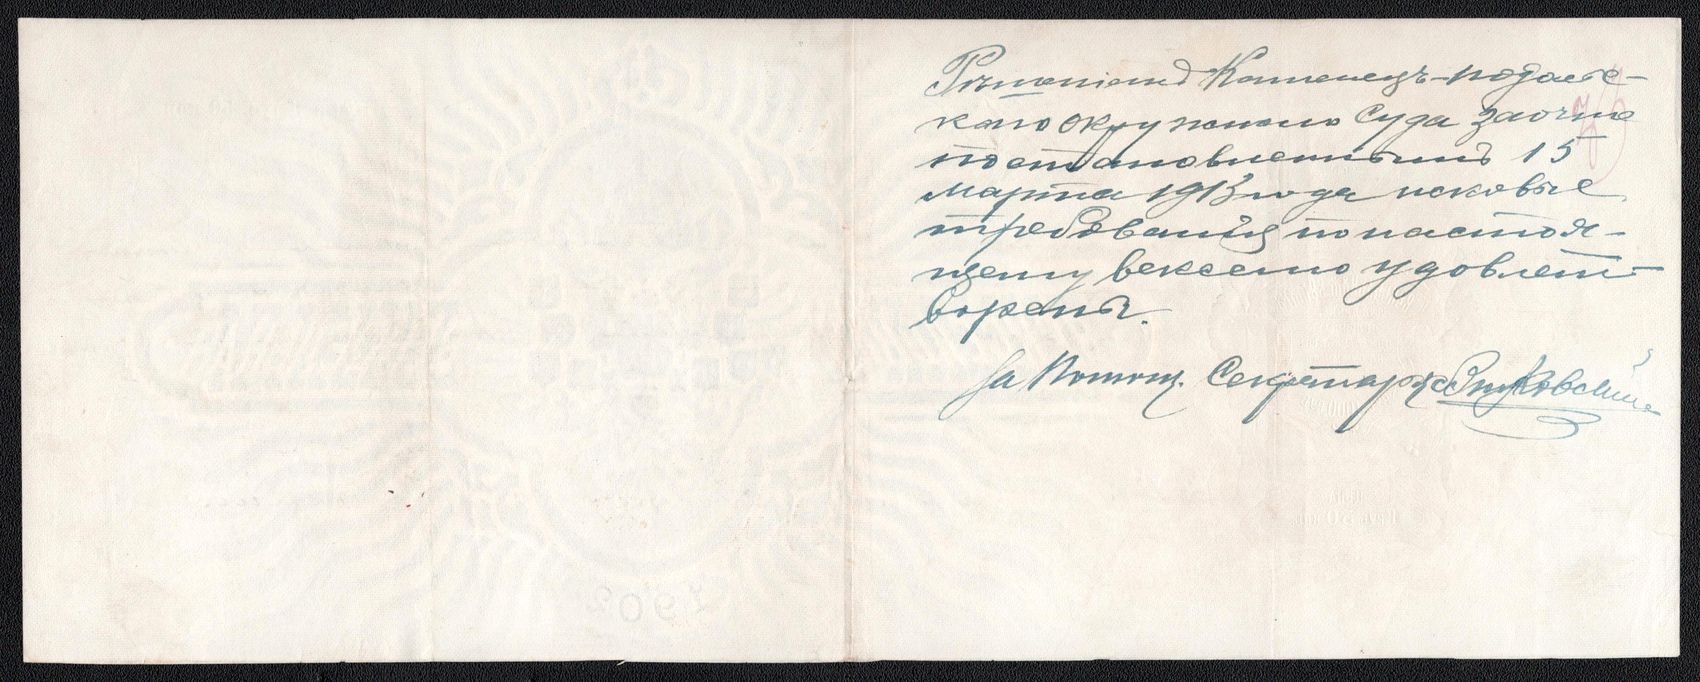 Рѣшеніемъ Каменецъ-подоль-
скаго окружного Суда заочно
постановленнымъ 15
марта 1913 года исковые
требования по настоя-
щему векселю удовлет-
ворены.
За Помощ. Секретаря
1902